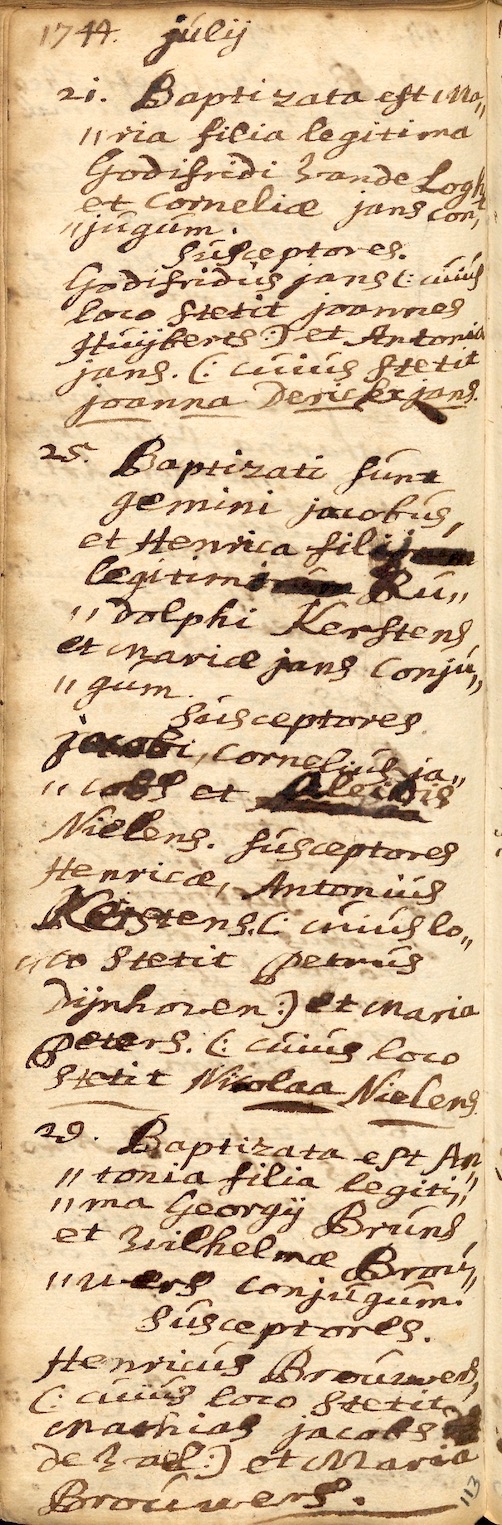 1744. júlij
21. Baptizata est Ma„
„ria filia legitima
Godifridi Vande Logh
et Corneliæ jans con„
„júgúm.
Súsceptores.
Godifridús jans (: cúiús
loco stetit joannes
Húijberts :) et Antonia
jans. (: cúiús stetit
joanna Derickx jans.
25. Baptizati súnt
gemini jacobús,
et Henrica filii
legitimi Rú„
„dolphi Kerstens
et Mariæ jans Conjú„
„gúm.
Súsceptores
jacobi, Cornelius ja„
„cobs et Aleidis
Nielens. súsceptores
Henricæ, Antoniús
Kerstens. (: cúiús lo„
„co stetit petrús
Dijnhoven :) et Maria
peters. (: cúiús loco
stetit Nicolaa Nielens.
29. Baptizata est An„
„tonia filia legiti„
„ma Georgij Brúns,
et Wilhelmæ Broú„
„wers conjúgúm.
Súsceptores.
Henricús Broúwers,
(: cúiús loco stetit
Mathias jacobs
de Zael :) et Maria
Broúwers.
113